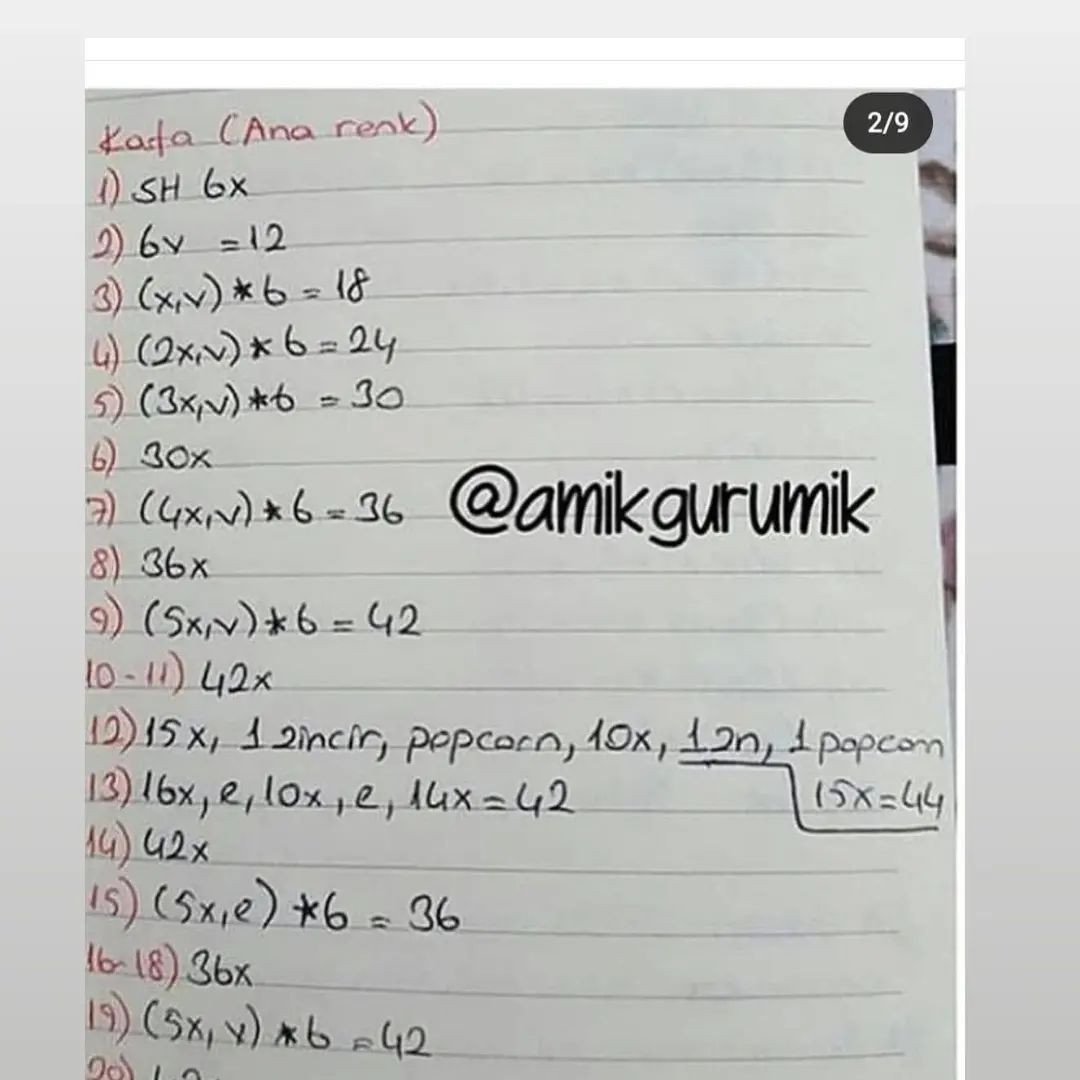 2/9
Kafa (Ana renk)
1) SH 6x
2) 6v =12
3) (x,v)*6 = 18
4) (2x,v)*6=24
5) (3x,v)*6 =30
6) 30x
7) (4x,v)*6=36
@amikgurumik
8) 36x
9) (5x,v)*6=42
10-11) 42x
12) 15x, 1 zincir, popcorn, 10x, 1zn, 1 popcorn
15x=44
13) 16x, e, 10x, e, 14x=42
14) 42x
15) (5x,e)*6 = 36
16-18) 36x
19) (5x, v)*6 =42
20)